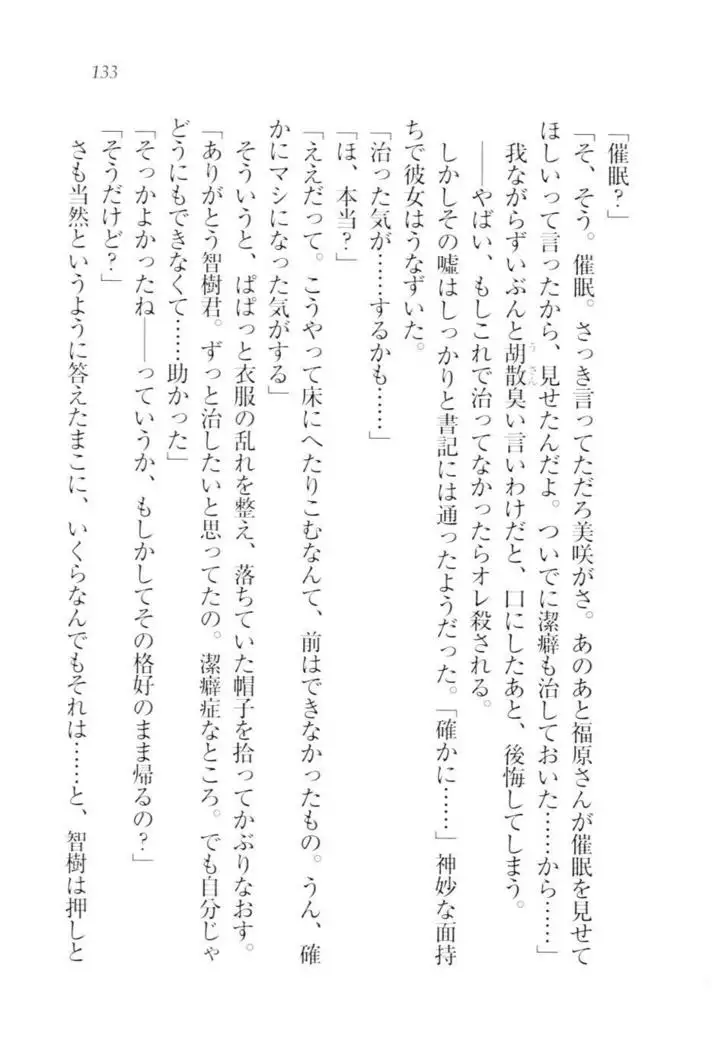 133
「催眠？」
「そ、そう。催眠。さっき言ってただろ美咲がさ。あのあと福原さんが催眠を見せて
ほしいって言ったから、見せたんだよ。ついでに潔癖も治しておいた……から……」
我ながらずいぶんと胡散臭い言いわけだと、口にしたあと、後悔してしまう。
うさん
――やばい、もしこれで治ってなかったらオレ殺される。
しかしその嘘はしっかりと書記には通ったようだった。「確かに……」神妙な面持
ちで彼女はうなずいた。
「治った気が……するかも……」
「ほ、本当？」
「ええだって。こうやって床にへたりこむなんて、前はできなかったもの。うん、確
かにマシになった気がする」
そういうと、ぱぱっと衣服の乱れを整え、落ちていた帽子を拾ってかぶりなおす。
「ありがとう智樹君。ずっと治したいと思ってたの。潔癖症なところ。でも自分じゃ
どうにもできなくて……助かった」
「そっかよかったね――っていうか、もしかしてその格好のまま帰るの？」
「そうだけど？」
さも当然というように答えたまこに、いくらなんでもそれは……と、智樹は押しと